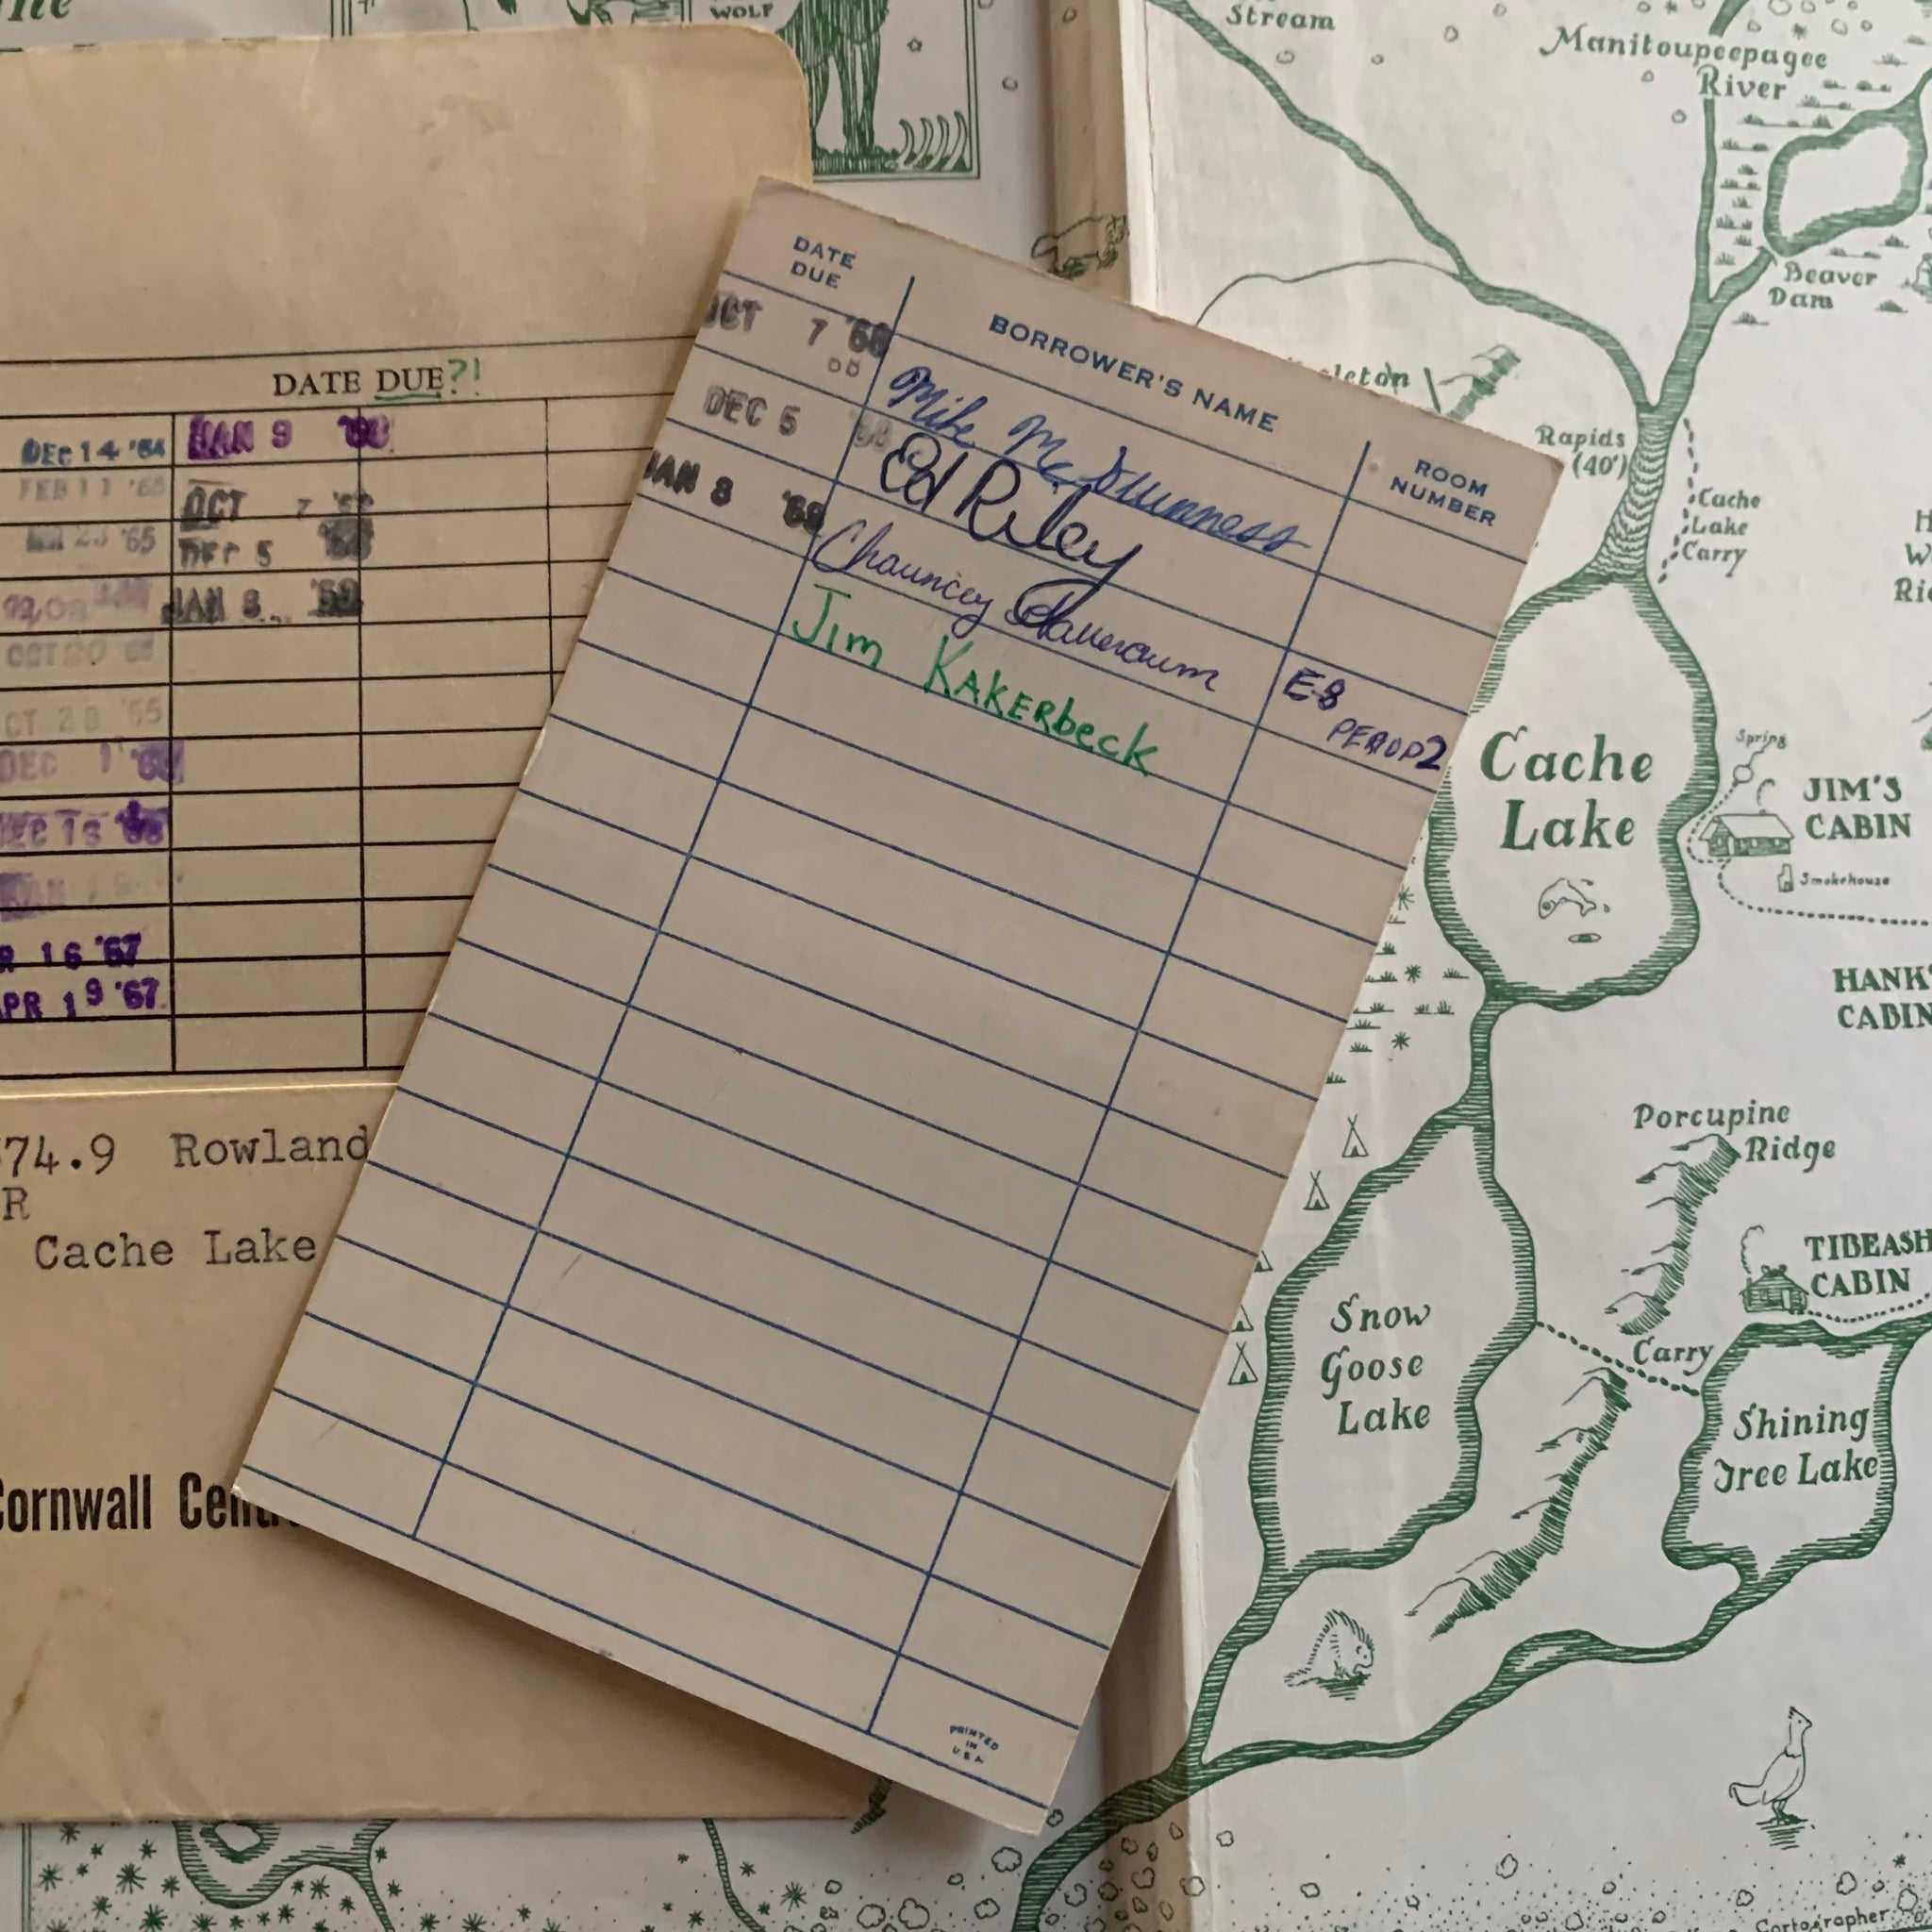 WOLF
DATE DUE?!
DEC 14 '64
JAN 9
FEB 11 '65
OCT 7
23 '65
DEC 5
JAN 8
OCT 20
OCT 28 '65
DEC 1
DEC 15
JAN
16 '67
APR 19 '67
74.9 Rowland
R
Cache Lake
Cornwall
DATE
DUE
BORROWER'S NAME
ROOM
NUMBER
OCT 7 '68
Mike
DEC 5
Ed Riley
JAN 8 '69
Chauncey
E-8
PERIOD 2
Jim KAKERbeck
PRINTED
IN
U.S.A.
Stream
Manitoupeepagee
River
Beaver
Dam
Rapids
(40')
Cache
Lake
Carry
Cache
Lake
Spring
JIM'S
CABIN
Smokehouse
HANK'
CABIN
Porcupine
Ridge
TIBEASH
CABIN
Snow
Goose
Lake
Carry
Shining
Tree Lake
Cartographer